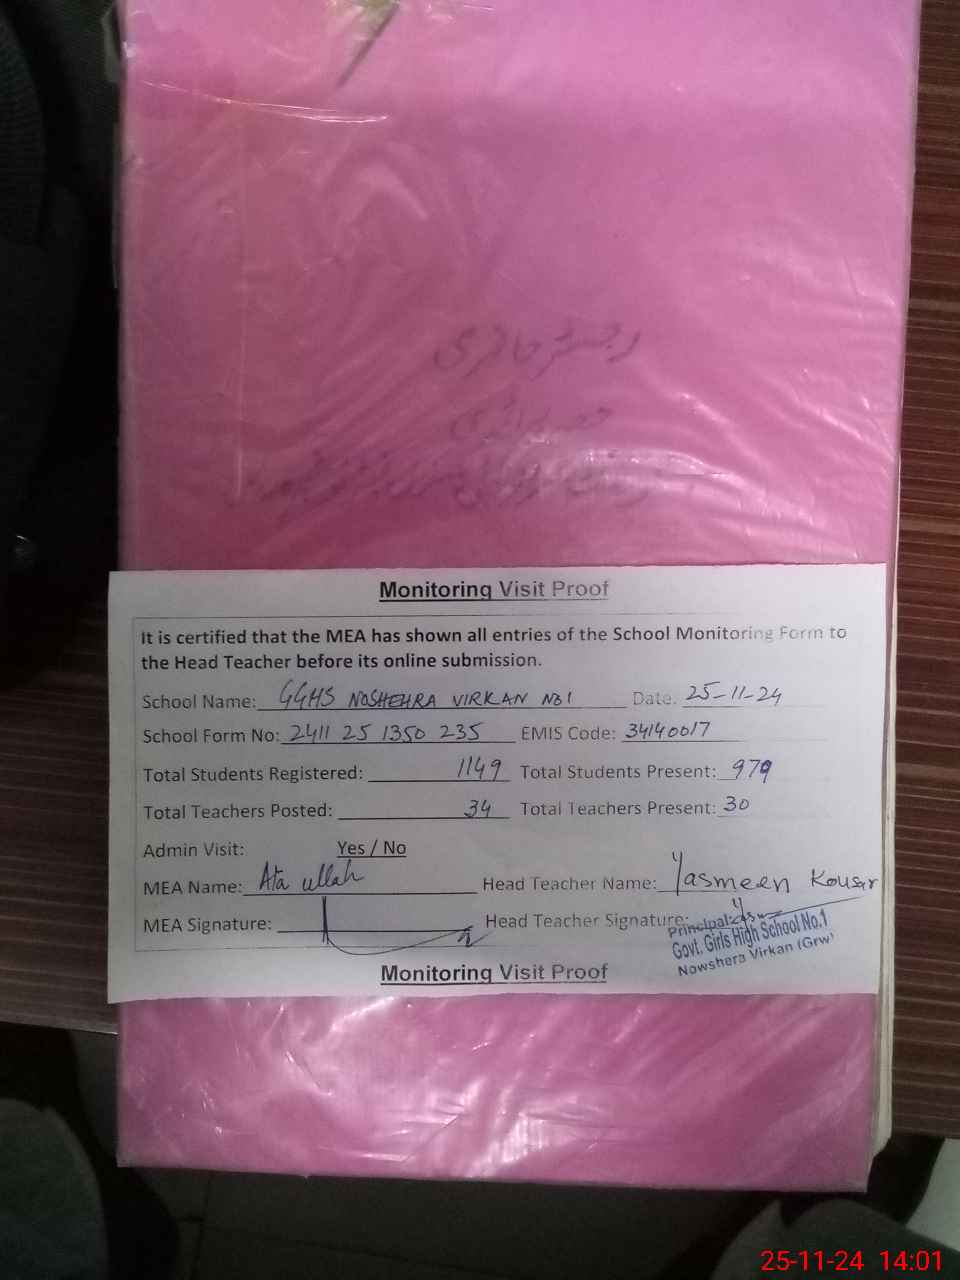 رجسٹر حاضری
Monitoring Visit Proof
It is certified that the MEA has shown all entries of the School Monitoring Form to
the Head Teacher before its online submission.
School Name: GGHS NOSHEHRA VIRKAN NO1 Date: 25-11-24
School Form No: 2411 25 1350 235 EMIS Code: 34140017
Total Students Registered: 1149 Total Students Present: 979
Total Teachers Posted: 34 Total Teachers Present: 30
Admin Visit: Yes / No
MEA Name: Ata ullah Head Teacher Name: Yasmeen Kousar
MEA Signature: Head Teacher Signature:
Principal
Govt. Girls High School No.1
Nowshera Virkan (Grw)
Monitoring Visit Proof
25-11-24 14:01